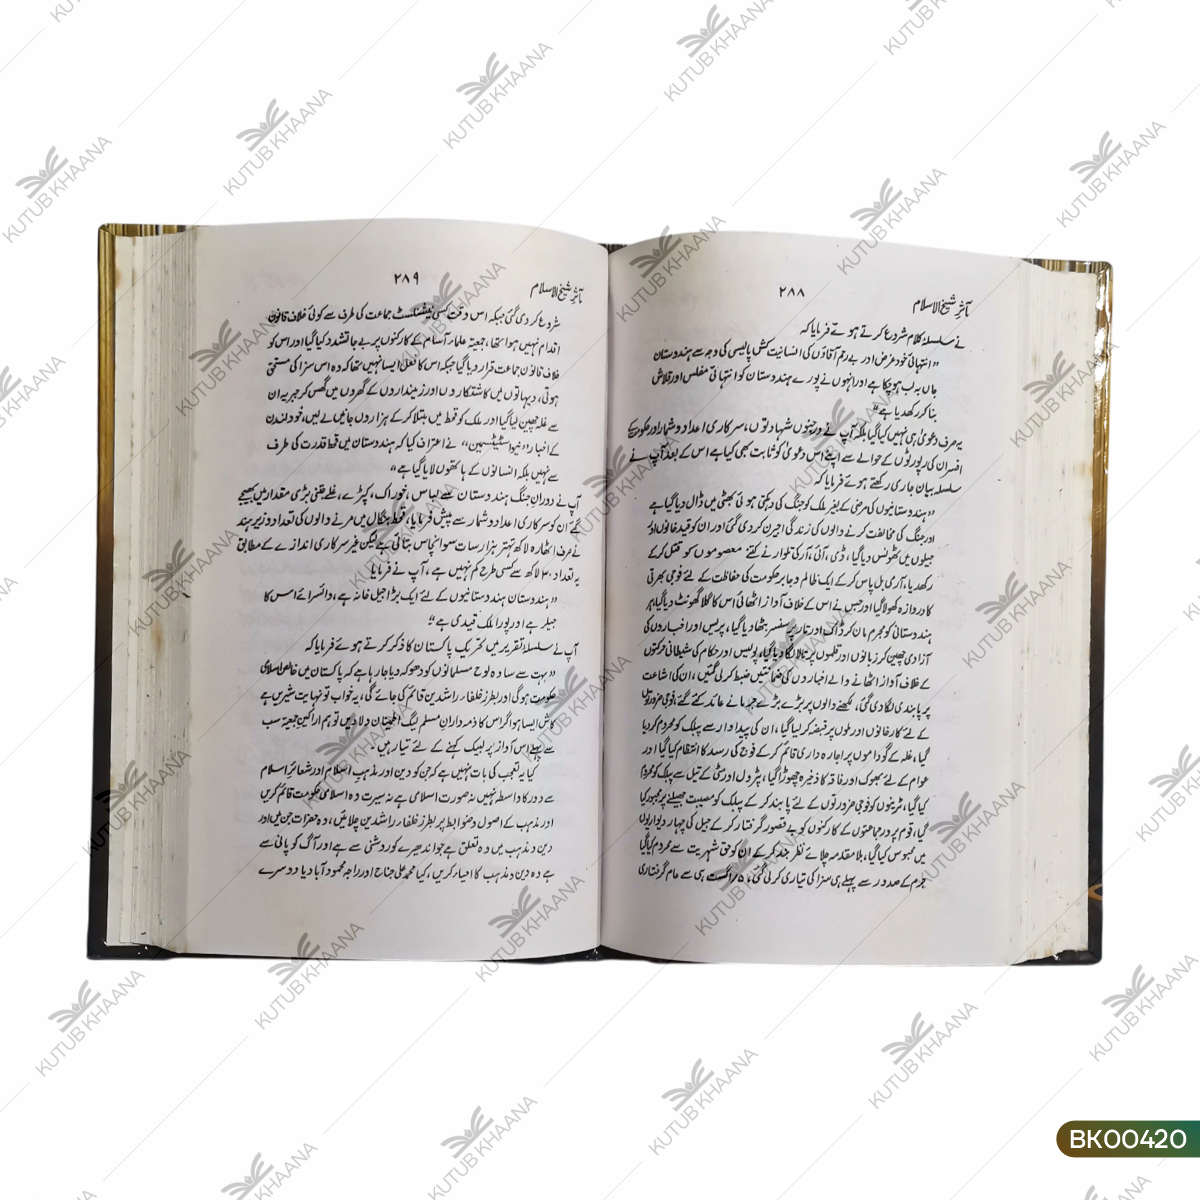 ۲۸۸
مآثر شیخ الاسلام
نے سلسلہ کلام شروع کرتے ہوئے فرمایا کہ
"انتہائی خود غرض اور بے رحم آقاؤں کی انسانیت کش پالیسی کی وجہ سے ہندوستان
جاں بہ لب ہوچکا ہے اور انہوں نے پورے ہندوستان کو انتہائی مفلس اور قلاش
بنا کر رکھ دیا ہے"
یہ صرف دعویٰ ہی نہیں کیا گیا بلکہ آپ نے شہادتوں، سرکاری اعداد و شمار اور حکومت کے
افسران کی رپورٹوں کے حوالے سے اپنے اس دعویٰ کو ثابت بھی کیا ہے اس کے بعد آپ نے
سلسلہ بیان جاری رکھتے ہوئے فرمایا کہ
"ہندوستانیوں کی مرضی کے بغیر ملک کو جنگ کی دہکتی ہوئی بھٹی میں ڈال دیا گیا ہے
اور جنگ کی مخالفت کرنے والوں کی زندگی اجیرن کر دی گئی اور ان کو قید خانوں اور
جیلوں میں ٹھونس دیا گیا، ڈی، آئی، آر کی تلوار نے کتنے معصوموں کو قتل کر کے
رکھ دیا، آرمی بل پاس کر کے ایک ظالم و جابر حکومت کی حفاظت کے لئے فوجی بھرتی
کا دروازہ کھولا گیا اور جس نے اس کے خلاف آواز اٹھائی اس کا گلا گھونٹ دیا گیا، ہر
ہندوستانی کو مجرم مان کر ڈاک اور تار پر سنسر بٹھا دیا گیا، پریس اور اخباروں کی
آزادی چھین کر زبانوں اور قلموں پر تالا لگا دیا گیا، پولیس اور حکام کی شیطانی حرکتوں
کے خلاف آواز اٹھانے والے اخباروں کی ضمانتیں ضبط کر لی گئیں، ان کی اشاعت
پر پابندی لگا دی گئی، لکھنے والوں پر بڑے بڑے جرمانے عائد کئے گئے، فوجی ضرورتوں
کے لئے کارخانوں اور ملوں پر قبضہ کر لیا گیا، ان کی پیداوار سے پبلک کو محروم کر دیا
گیا، غلہ کے گوداموں پر اجارہ داری قائم کر کے فوج کی رسد کا انتظام کیا گیا اور
عوام کے لئے بھوک اور فاقہ کا ذخیرہ چھوڑا گیا، پٹرول اور مٹی کے تیل سے پبلک کو محروم
کیا گیا، ٹرینوں کو فوجی ضرورتوں کے لئے پابند کر کے پبلک کو مصیبت جھیلنے پر مجبور کیا
گیا، قوم پرور جماعتوں کے کارکنوں کو بے قصور گرفتار کر کے جیل کی چہار دیواریوں
میں محبوس کیا گیا، بلا مقدمہ چلائے نظر بند کر کے ان کو حق شہریت سے محروم کیا گیا
جرم کے صدور سے پہلے ہی سزا کی تیاری کر لی گئی، اگست ہی سے عام گرفتاری
۲۸۹
مآثر شیخ الاسلام
شروع کر دی گئی جبکہ اس وقت کسی نیشنلسٹ جماعت کی طرف سے کوئی خلاف قانون
اقدام نہیں ہوا تھا، جمعیۃ علماء آسام کے کارکنوں پر بے جا تشدد کیا گیا اور اس کو
خلاف قانون جماعت قرار دیا گیا جبکہ اس کا فعل ایسا نہیں تھا کہ وہ اس سزا کی مستحق
ہوتی، دیہاتوں میں کاشتکاروں اور زمینداروں کے گھروں میں گھس کر جبریہ ان
سے غلہ چھین لیا گیا اور ملک کو قحط میں مبتلا کر کے ہزاروں جانیں لے لیں، خود لندن
کے اخبار "نیو اسٹیٹسمین" نے اعتراف کیا کہ ہندوستان میں قحط قدرت کی طرف
سے نہیں بلکہ انسانوں کے ہاتھوں لایا گیا ہے"
آپ نے دوران جنگ ہندوستان سے لباس، خوراک، کپڑے، غلے جتنی بڑی مقدار میں بھیجے
گئے ان کو سرکاری اعداد و شمار سے پیش فرمایا، قحط بنگال میں مرنے والوں کی تعداد وزیر ہند
نے صرف اٹھارہ لاکھ تہتر ہزار سات سو انچاس بتائی ہے لیکن غیر سرکاری اندازے کے مطابق
یہ تعداد ۳۰ لاکھ سے کسی طرح کم نہیں ہے، آپ نے فرمایا
"ہندوستان ہندوستانیوں کے لئے ایک بڑا جیل خانہ ہے، وائسرائے اس کا
جیلر ہے اور پورا ملک قیدی ہے"
آپ نے سلسلہ تقریر میں تحریک پاکستان کا ذکر کرتے ہوئے فرمایا کہ
"بہت سے سادہ لوح مسلمانوں کو دھوکہ دیا جا رہا ہے کہ پاکستان میں خالص اسلامی
حکومت ہوگی اور بطرز خلفاء راشدین قائم کی جائے گی، یہ خواب تو نہایت شیریں ہے
کاش ایسا ہوا گر اس کا ذمہ داران مسلم لیگ اطمینان دلا دیں تو ہم اراکین جمعیۃ سب
سے پہلے اس آواز پر لبیک کہنے کے لئے تیار ہیں۔
کیا یہ تعجب کی بات نہیں ہے کہ جن کو دین اور مذہب اسلام اور شعائر اسلام
سے دور کا واسطہ نہیں نہ صورت اسلامی ہے نہ سیرت وہ اسلامی حکومت قائم کریں
اور مذہب کے اصول و ضوابط پر بطرز خلفاء راشدین چلائیں، وہ حضرات جن میں اور
دین و مذہب میں وہ تعلق ہے جو اندھیرے کو روشنی سے ہے اور آگ کو پانی سے
ہے وہ دین و مذہب کا احیاء کریں، کیا محمد علی جناح اور راجہ محمود آباد یا دوسرے
BK00420
KUTUB KHAANA